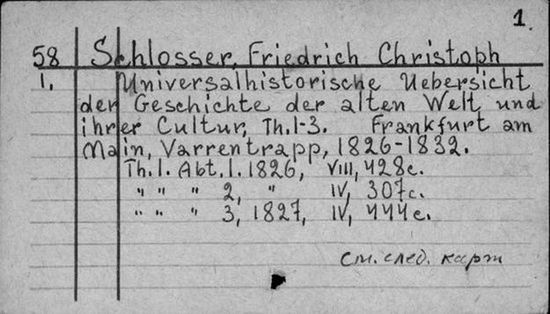 1.
58 Schlosser, Friedrich Christoph
1. Universalhistorische Uebersicht
der Geschichte der alten Welt und
ihrer Cultur, Th.1-3. Frankfurt am
Main, Varrentrapp, 1826-1832.
Th.1. Abt.1. 1826, VIII, 428с.
" " " 2, " IV, 307с.
" " " 3, 1827, IV, 444с.
См. след. карт